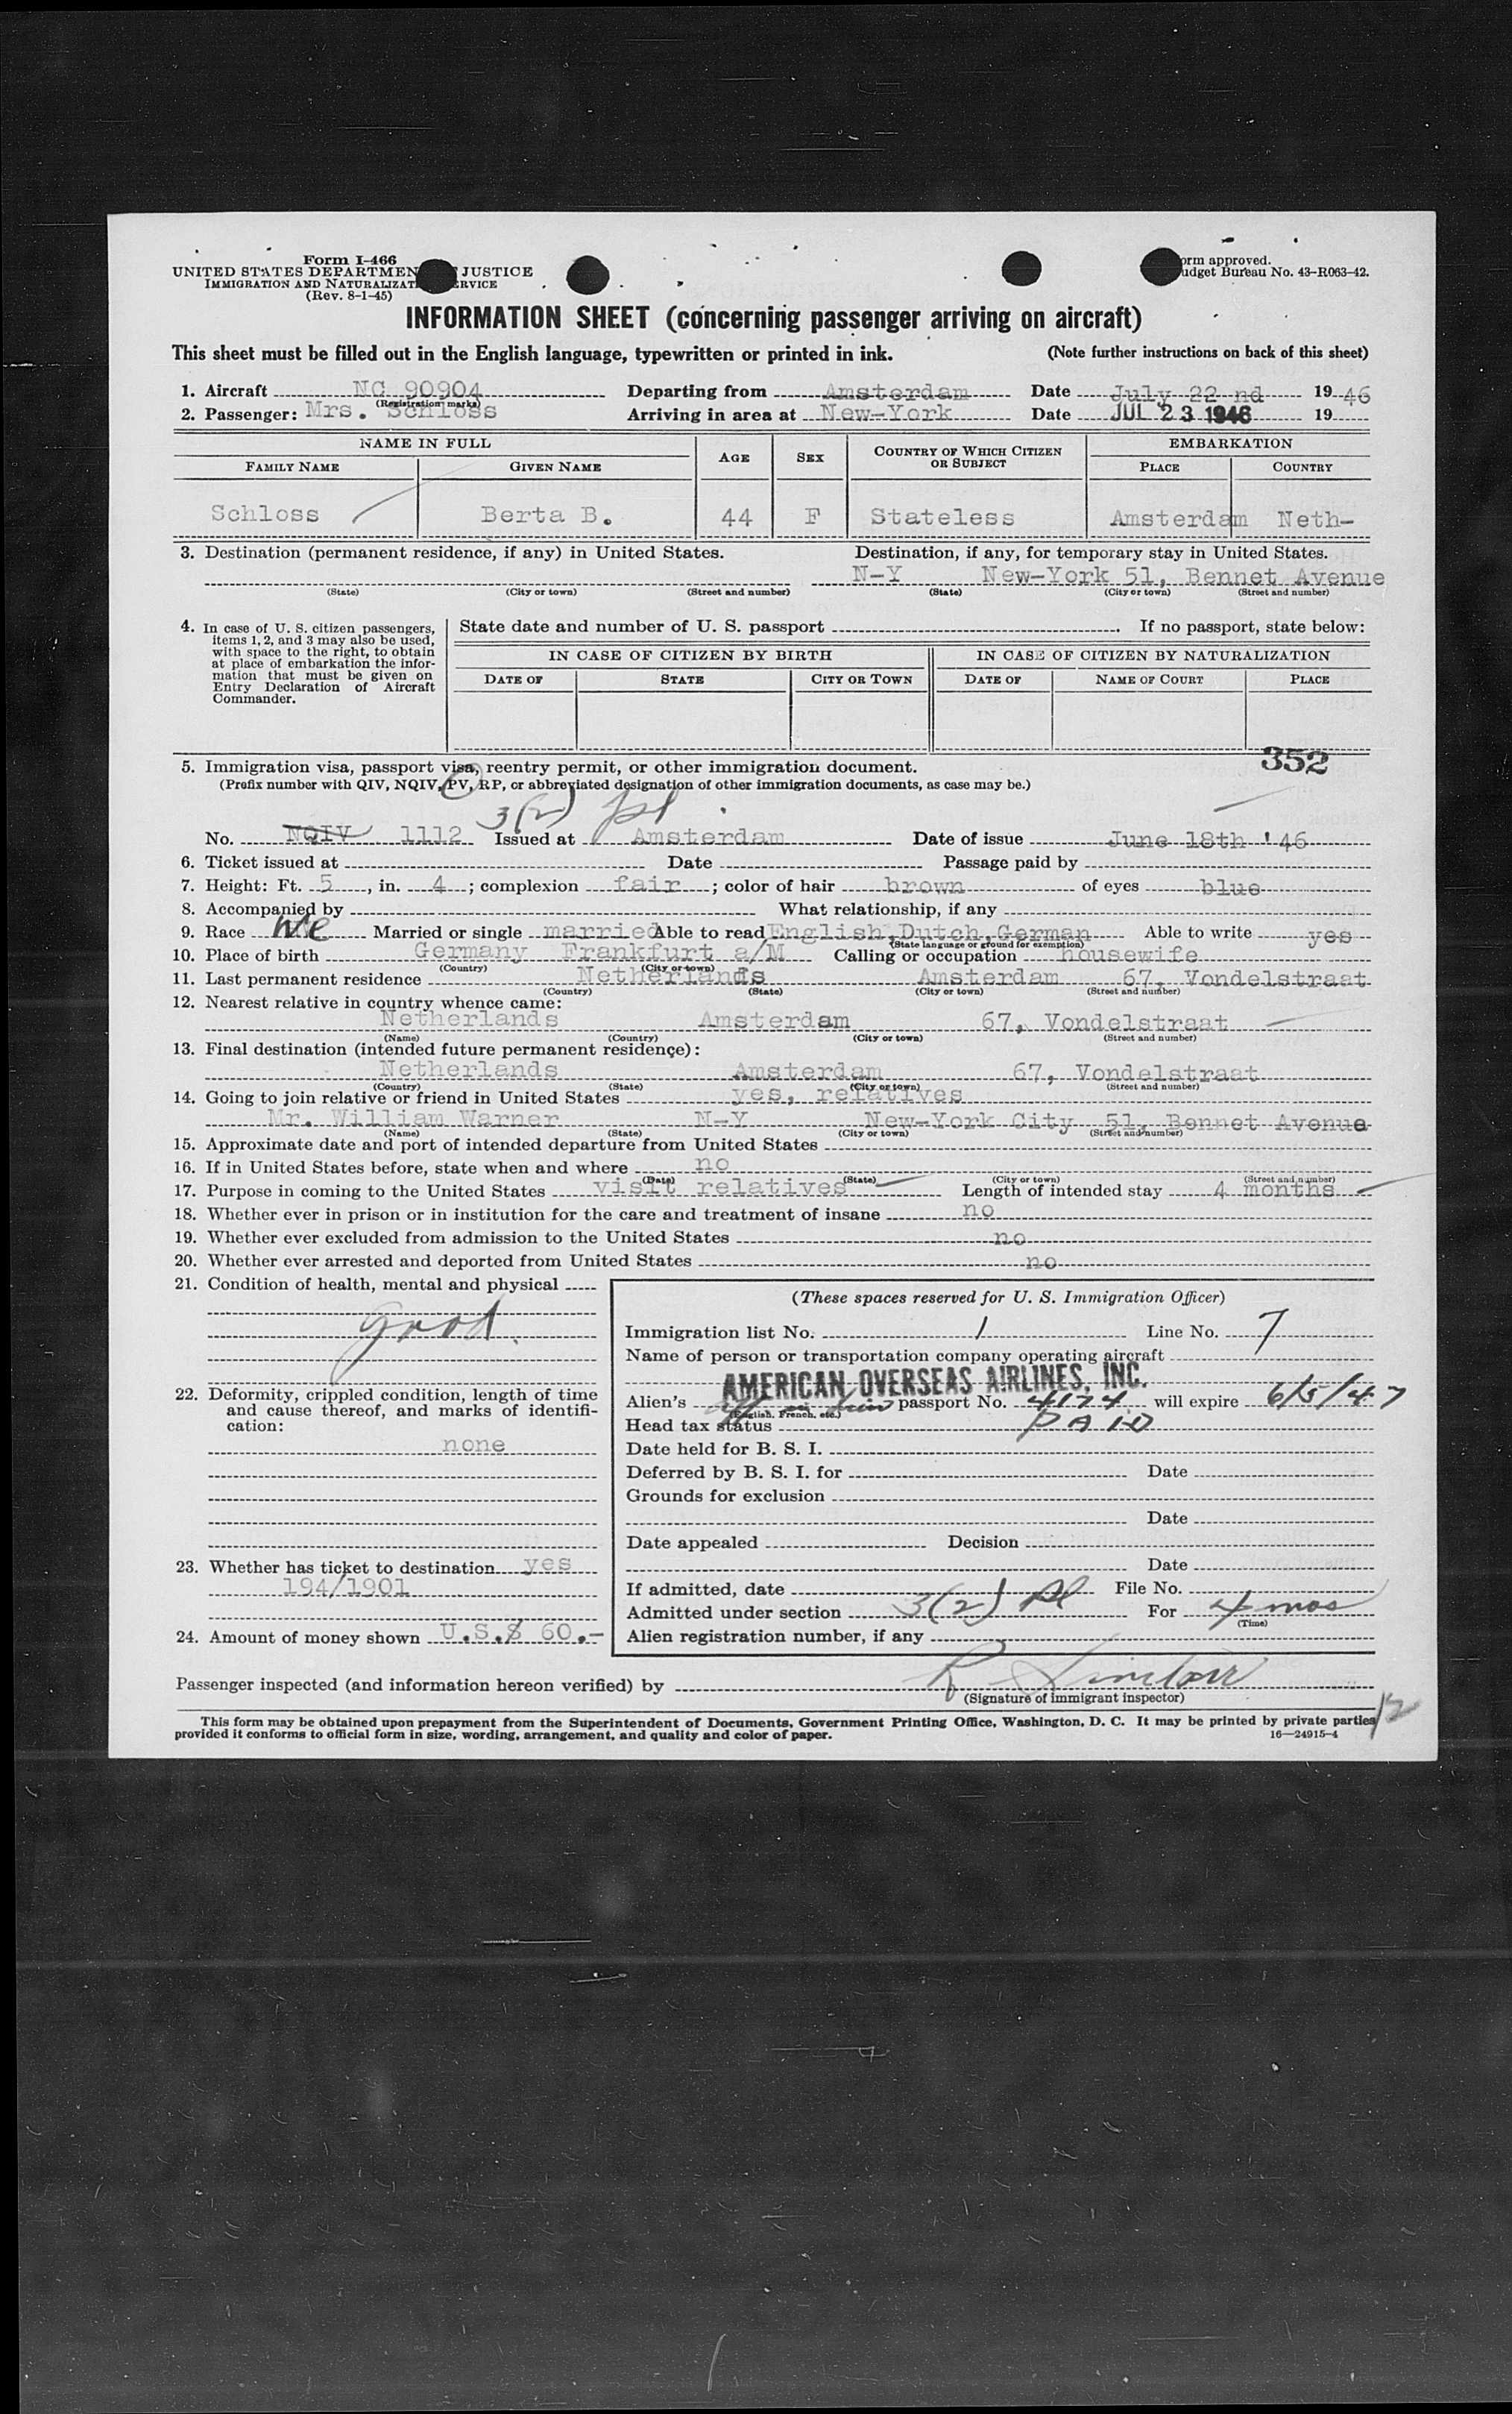 Form I-466
UNITED STATES DEPARTMEN JUSTICE
IMMIGRATION AND NATURALIZAT RVICE
(Rev. 8-1-45)
orm approved.
udget Bureau No. 43-R063-42.
INFORMATION SHEET (concerning passenger arriving on aircraft)
This sheet must be filled out in the English language, typewritten or printed in ink. (Note further instructions on back of this sheet)
1. Aircraft NC 90904 Departing from Amsterdam Date July 22 nd 1946
(Registration marks)
2. Passenger: Mrs. Schloss Arriving in area at New-York Date JUL 23 1946 19
NAME IN FULL AGE SEX COUNTRY OF WHICH CITIZEN OR SUBJECT EMBARKATION
FAMILY NAME GIVEN NAME PLACE COUNTRY
Schloss Berta B. 44 F Stateless Amsterdam Neth-
3. Destination (permanent residence, if any) in United States. Destination, if any, for temporary stay in United States.
N-Y New-York 51, Bennet Avenue
(State) (City or town) (Street and number) (State) (City or town) (Street and number)
4. In case of U. S. citizen passengers, items 1, 2, and 3 may also be used, with space to the right, to obtain at place of embarkation the information that must be given on Entry Declaration of Aircraft Commander.
State date and number of U. S. passport . If no passport, state below:
IN CASE OF CITIZEN BY BIRTH IN CASE OF CITIZEN BY NATURALIZATION
DATE OF STATE CITY OR TOWN DATE OF NAME OF COURT PLACE
352
5. Immigration visa, passport visa, reentry permit, or other immigration document.
(Prefix number with QIV, NQIV, PV, RP, or abbreviated designation of other immigration documents, as case may be.)
3(2)
No. NQIV 1112 Issued at Amsterdam Date of issue June 18th '46
6. Ticket issued at Date Passage paid by
7. Height: Ft. 5, in. 4; complexion fair; color of hair brown of eyes blue
8. Accompanied by What relationship, if any
9. Race Married or single married Able to read English,Dutch,German Able to write yes
(State language or ground for exemption)
10. Place of birth Germany Frankfurt a/M Calling or occupation housewife
(Country) (City or town)
11. Last permanent residence Netherlands Amsterdam 67, Vondelstraat
(Country) (State) (City or town) (Street and number)
12. Nearest relative in country whence came:
Netherlands Amsterdam 67, Vondelstraat
(Name) (Country) (City or town) (Street and number)
13. Final destination (intended future permanent residence):
Netherlands Amsterdam 67, Vondelstraat
(Country) (State) (City or town) (Street and number)
14. Going to join relative or friend in United States yes, relatives
Mr. William Warner N-Y New-York City 51, Bennet Avenue
(Name) (State) (City or town) (Street and number)
15. Approximate date and port of intended departure from United States
16. If in United States before, state when and where no
(Date) (State) (City or town) (Street and number)
17. Purpose in coming to the United States visit relatives Length of intended stay 4 months
18. Whether ever in prison or in institution for the care and treatment of insane no
19. Whether ever excluded from admission to the United States no
20. Whether ever arrested and deported from United States no
21. Condition of health, mental and physical
good.
22. Deformity, crippled condition, length of time and cause thereof, and marks of identification:
none
23. Whether has ticket to destination yes
194/1901
24. Amount of money shown U.S.$ 60.-
(These spaces reserved for U. S. Immigration Officer)
Immigration list No. 1 Line No. 7
Name of person or transportation company operating aircraft
AMERICAN OVERSEAS AIRLINES, INC.
Alien's passport No. 4174 will expire 6/5/47
(English, French, etc.)
Head tax status PAID
Date held for B. S. I.
Deferred by B. S. I. for Date
Grounds for exclusion
Date
Date appealed Decision
Date
If admitted, date File No.
Admitted under section 3(2) For 4 mos
(Time)
Alien registration number, if any
Passenger inspected (and information hereon verified) by
(Signature of immigrant inspector)
This form may be obtained upon prepayment from the Superintendent of Documents, Government Printing Office, Washington, D. C. It may be printed by private parties
provided it conforms to official form in size, wording, arrangement, and quality and color of paper. 16—24915-4